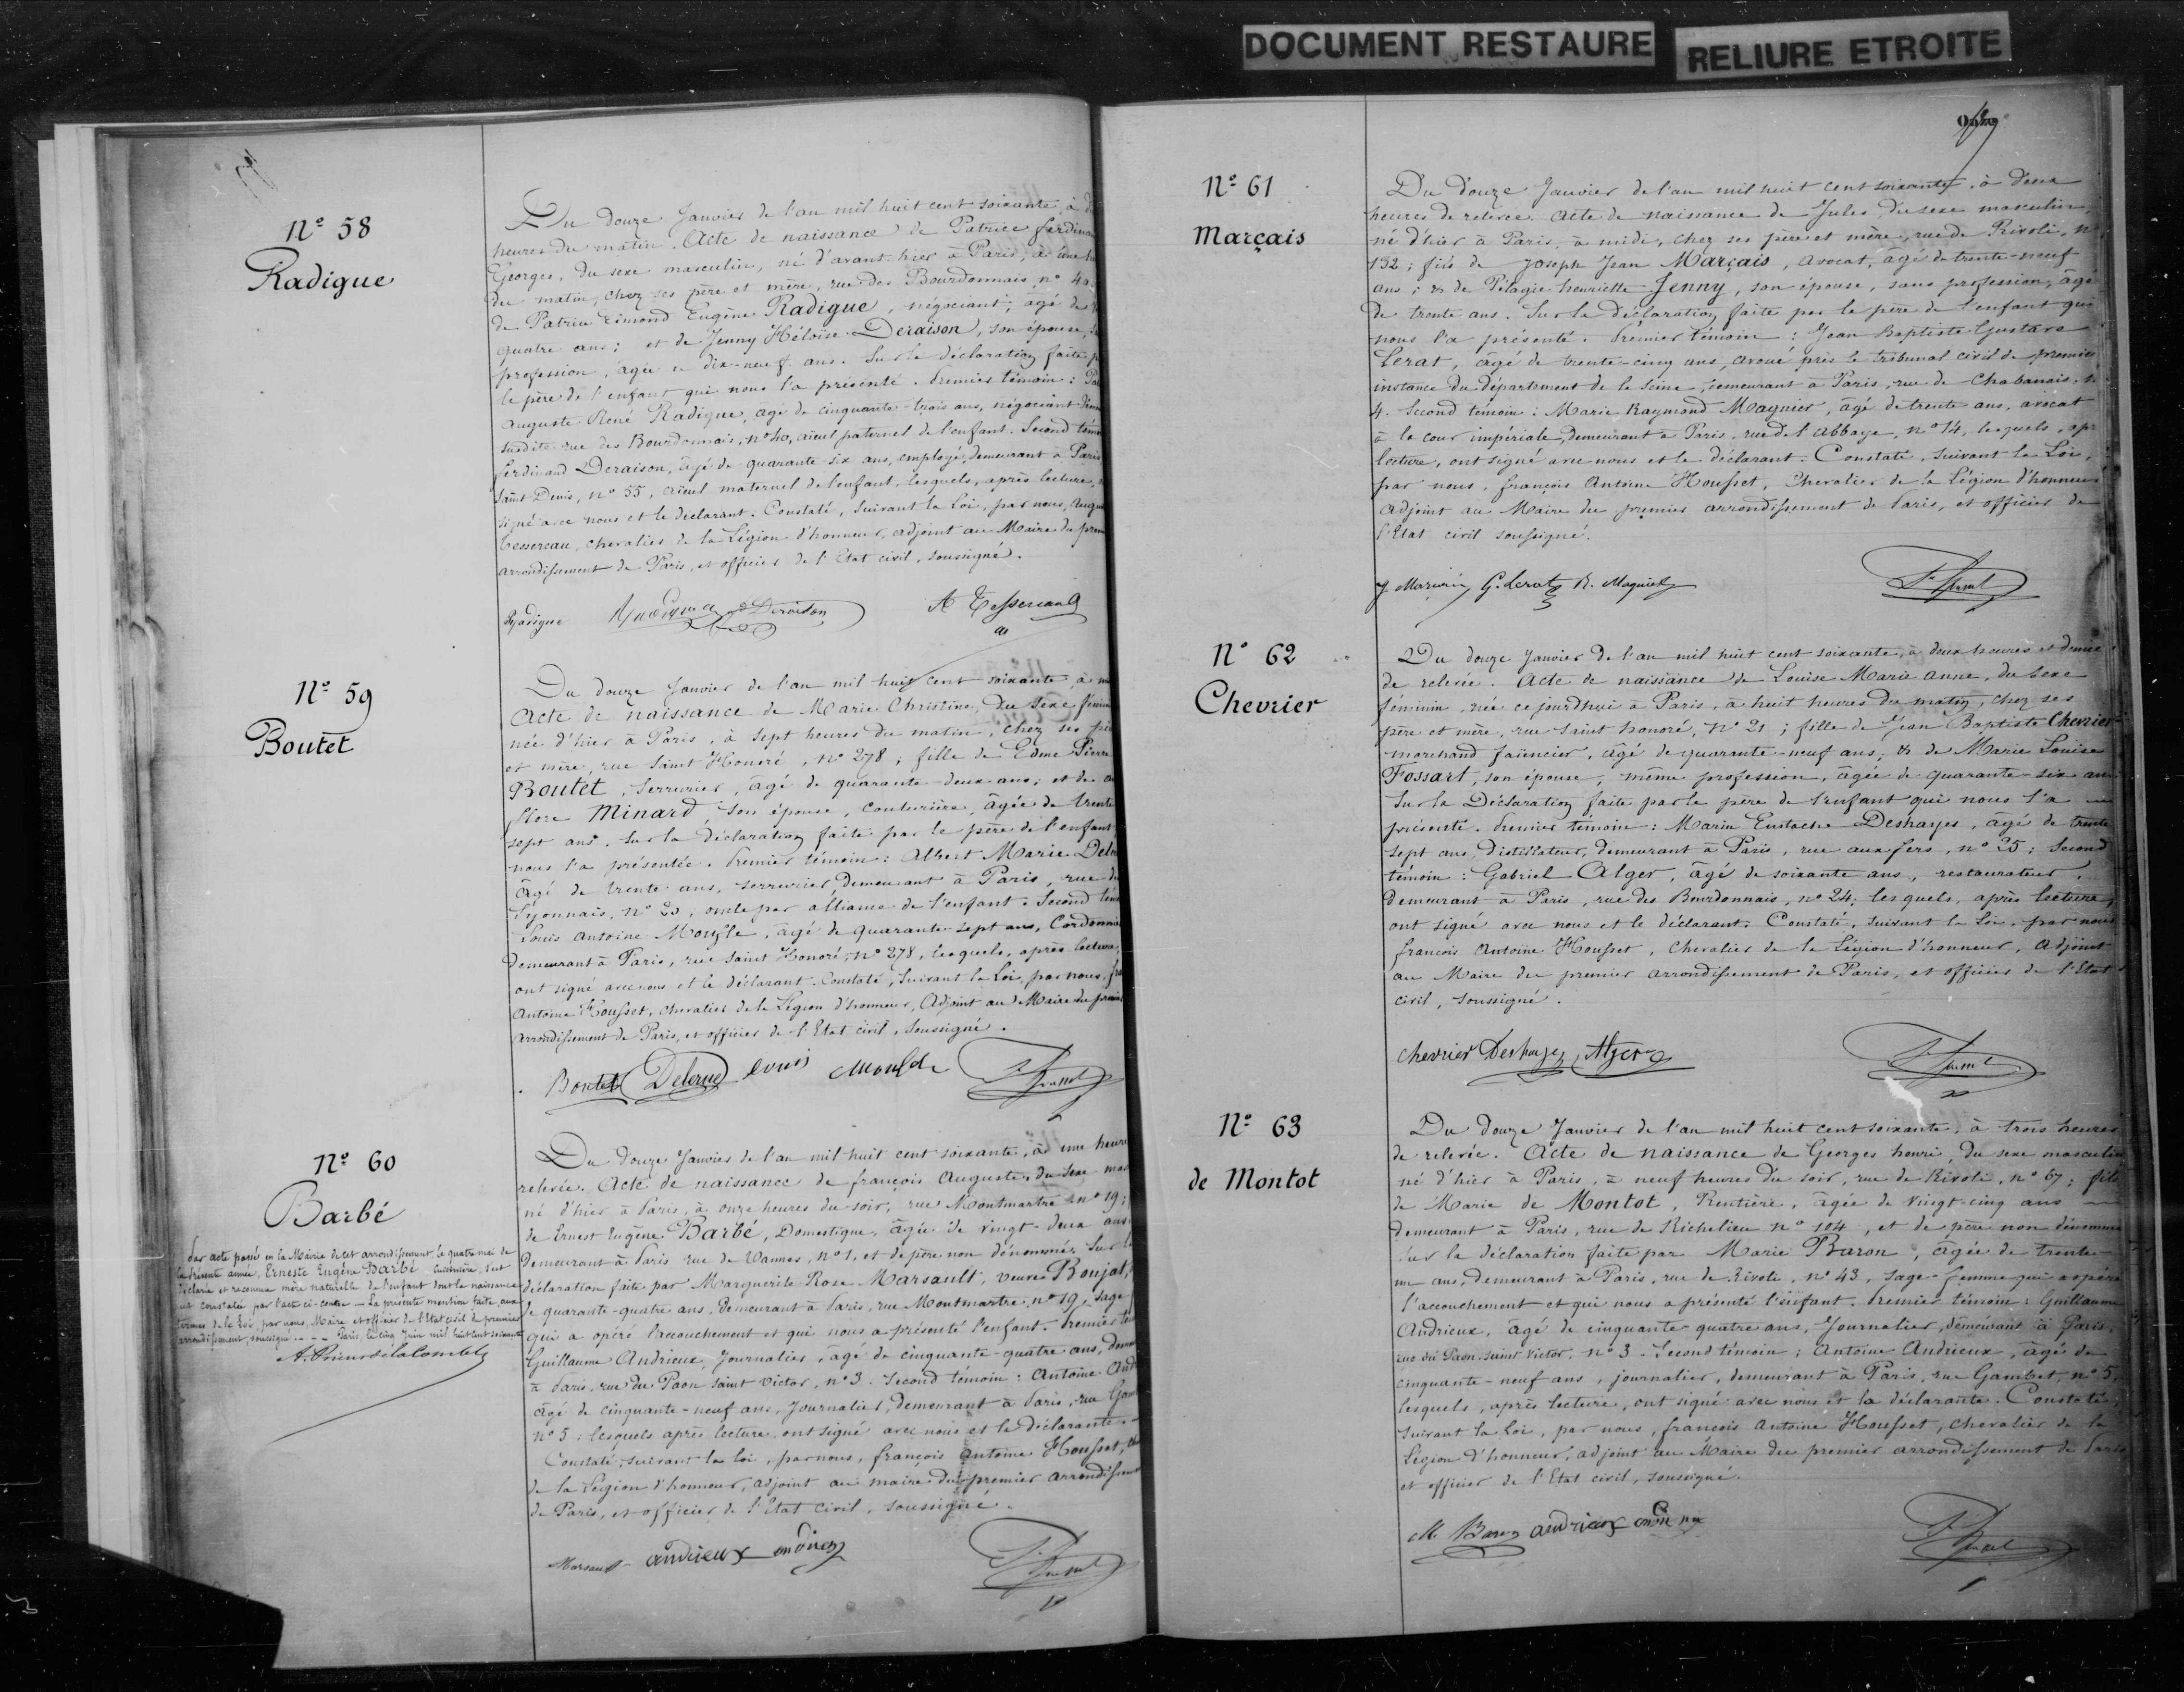 DOCUMENT RESTAURE
RELIURE ETROITE
Nº 58
Radigue
Du douze Janvier de l'an mil huit cent soixante, à
heures du matin. Acte de naissance de Patrice ferdinan
Georges, du sexe masculin, né d'avant-hier à Paris, à une h
du matin, chez ses père et mère, rue des Bourdonnais, nº 40
de Patrice Edmond Eugène Radigue, négociant, âgé de
quatre ans; et de Jenny Héloïse Deraison, son épouse, s
profession, âgée de dix-neuf ans. Sur la déclaration faite p
le père de l'enfant qui nous l'a présenté. Premier témoin: Pa
Auguste René Radigue, âgé de cinquante-trois ans, négociant dem
susdite rue des Bourdonnais, nº 40, aïeul paternel de l'enfant. Second témo
ferdinand Deraison, âgé de quarante-six ans, employé, demeurant à Paris
Saint Denis, nº 55, aïeul maternel de l'enfant, lesquels, après lecture,
signé avec nous et le déclarant. Constaté, suivant la Loi, par nous, Augu
Tessereau, chevalier de la Légion d'honneur, adjoint au Maire du prem
arrondissement de Paris, et officier de l'Etat civil, soussigné.
Radigue Radigue Deraison A Tessereau
Nº 59
Boutet
Du douze Janvier de l'an mil huit cent soixante, à m
Acte de naissance de Marie Christine, du Sexe fémin
née d'hier à Paris, à sept heures du matin, chez ses pèr
et mère, rue Saint Honoré, nº 278; fille de Edme Pierre
Boutet, Serrurier, âgé de quarante-deux ans; et de
flore Minard, son épouse, couturière, âgée de trente
sept ans. Sur la déclaration faite par le père de l'enfant
nous l'a présentée. Premier témoin: Albert Marie Dele
âgé de trente ans, serrurier, demeurant à Paris, rue d
Lyonnais, nº 20, oncle par alliance de l'enfant. Second tém
Louis Antoine Moufle, âgé de quarante-sept ans, Cordonni
demeurant à Paris, rue Saint Honoré, nº 278, lesquels, après lecture,
ont signé avec nous et le déclarant. Constaté, suivant la Loi, par nous, fra
Antoine Housset, chevalier de la Légion d'honneur, Adjoint au Maire du premi
arrondissement de Paris, et officier de l'Etat civil, soussigné.
Boutet Delerue louis Moufle
Nº 60
Barbé
Par acte passé en la Mairie de cet arrondissement, le quatre mai de
la présente année, Erneste Eugène Barbé, cuisinière, s'est
déclarée et reconnue mère naturelle de l'enfant dont la naissance
est constatée par l'acte ci-contre. La présente mention faite, aux
termes de la Loi, par nous, Maire et officier de l'Etat civil du premier
arrondissement, soussigné. Paris, le cinq Juin mil huit cent soixante
Du douze Janvier de l'an mil huit cent soixante, à une heure
relevée. Acte de naissance de françois Auguste, du Sexe mas
né d'hier à Paris, à onze heures du soir, rue Montmartre nº 19;
de Ernest Eugène Barbé, Domestique, âgée de vingt-deux ans
Demeurant à Paris rue de Vannes, nº 1, et de père non dénommé. Sur la
déclaration faite par Marguerite Rose Marsault, veuve Bonjat,
de quarante-quatre ans, demeurant à Paris, rue Montmartre, nº 19, sage
qui a opéré l'accouchement et qui nous a présenté l'enfant. Premier tém
Guillaume Andrieux, Journalier, âgé de cinquante-quatre ans, deme
à Paris, rue du Paon saint Victor, nº 3. Second témoin: Antoine And
âgé de cinquante-neuf ans, Journalier, demeurant à Paris, rue Gam
nº 5; lesquels après lecture, ont signé avec nous et la déclarante.
Constaté, suivant la loi, par nous, françois Antoine Housset, che
de la Légion d'honneur, adjoint au maire du premier arrondissemen
de Paris, et officier de l'Etat civil, soussigné.
Marsault andrieux
Nº 61
Marçais
Du Douze Janvier de l'an mil huit cent soixante, à deux
heures de relevée. Acte de naissance de Jules, du sexe masculin,
né d'hier à Paris, à midi, chez ses père et mère, rue de Rivoli, nº
132; fils de Joseph Jean Marçais, avocat, âgé de trente-neuf
ans; & de Pélagie henriette Jenny, son épouse, sans profession, âgée
de trente ans. Sur la déclaration faite par le père de l'enfant qui
nous l'a présenté. Premier témoin: Jean Baptiste Gustave
Lerat, âgé de trente-cinq ans, avoué près le tribunal civil de première
instance du département de la Seine, demeurant à Paris, rue de Chabanais, nº
4. Second témoin: Marie Raymond Magnier, âgé de trente ans, avocat
à la cour impériale, demeurant à Paris, rue de l'Abbaye, nº 14, lesquels, apr
lecture, ont signé avec nous et le déclarant. Constaté, suivant la Loi,
par nous, françois Antoine Housset, Chevalier de la Légion d'honneur
Adjoint au Maire du premier arrondissement de Paris, et officier de
l'Etat civil soussigné.
J. Marçais G. Lerat R. Magnier
Nº 62
Chevrier
Du douze Janvier de l'an mil huit cent soixante, à deux heures et demie
de relevée. Acte de naissance de Louise Marie Anne, du Sexe
féminin, née ce jourd'hui à Paris, à huit heures du matin, chez ses
père et mère, rue Saint honoré, nº 21; fille de Jean Baptiste Chevrier
marchand faïencier, âgé de quarante-neuf ans; & de Marie Louise
Fossart, son épouse, même profession, âgée de quarante-six ans
Sur la Déclaration faite par le père de l'enfant qui nous l'a
présenté. Premier témoin: Marin Eustache Deshayes, âgé de trente
sept ans, Distillateur, demeurant à Paris, rue aux fers, nº 25; Second
témoin: Gabriel Alger, âgé de soixante ans, restaurateur,
demeurant à Paris, rue des Bourdonnais, nº 24; lesquels, après lecture,
ont signé avec nous et le déclarant. Constaté, suivant la Loi, par nous
françois Antoine Housset, Chevalier de la Légion d'honneur, Adjoint
au Maire du premier arrondissement de Paris, et officier de l'Etat
civil, soussigné.
chevrier Deshayes Alger
Nº 63
de Montot
Du douze Janvier de l'an mil huit cent soixante, à trois heures
de relevée. Acte de naissance de Georges henri, du sexe masculin
né d'hier à Paris, à neuf heures du soir, rue de Rivoli, nº 67; fils
de Marie de Montot, Rentière, âgée de vingt-cinq ans
demeurant à Paris, rue de Richelieu nº 104, et de père non dénommé
Sur la déclaration faite par Marie Baron, âgée de trente-
un ans, demeurant à Paris, rue de Rivoli, nº 43, sage-femme qui a opéré
l'accouchement et qui nous a présenté l'enfant. Premier témoin: Guillaume
Andrieux, âgé de cinquante-quatre ans, Journalier, demeurant à Paris,
rue du Paon saint Victor, nº 3. Second témoin: Antoine Andrieux, âgé de
cinquante-neuf ans, journalier, demeurant à Paris, rue Gambet, nº 5,
lesquels, après lecture, ont signé avec nous et la déclarante. Constaté,
suivant la Loi, par nous, françois Antoine Housset, chevalier de la
Légion d'honneur, adjoint au Maire du premier arrondissement de Paris
et officier de l'Etat civil, soussigné.
M. Baron andrieux